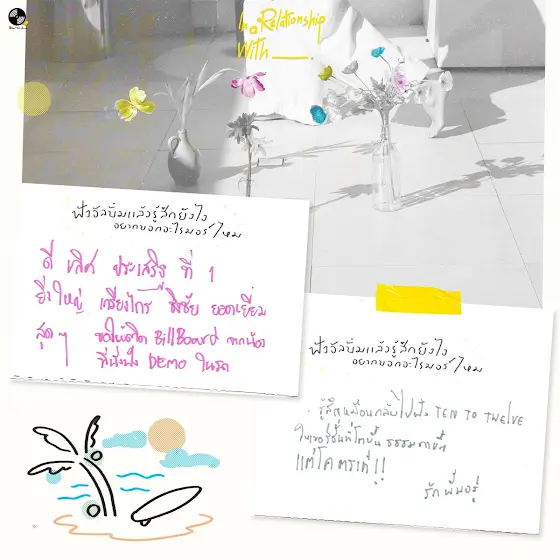 In a Relationship
With
ฟังอัลบั้มแล้วรู้สึกยังไง
อยากบอกอะไรมอร์ไหม
ดี เลิศ ประเสริฐ ที่ 1
ยิ่งใหญ่ เกรียงไกร ชิงชัย ยอดเยี่ยม
สุดๆ ขอให้ติด BillBoard จากน้อง
ที่นั่งฟัง DEMO ในรถ
ฟังอัลบั้มแล้วรู้สึกยังไง
อยากบอกอะไรมอร์ไหม
รู้สึกเหมือนกลับไปฟัง TEN TO TWELVE
ในเวอร์ชั่นที่โตขึ้น
แต่โคตรเท่!!
รักพี่มอร์